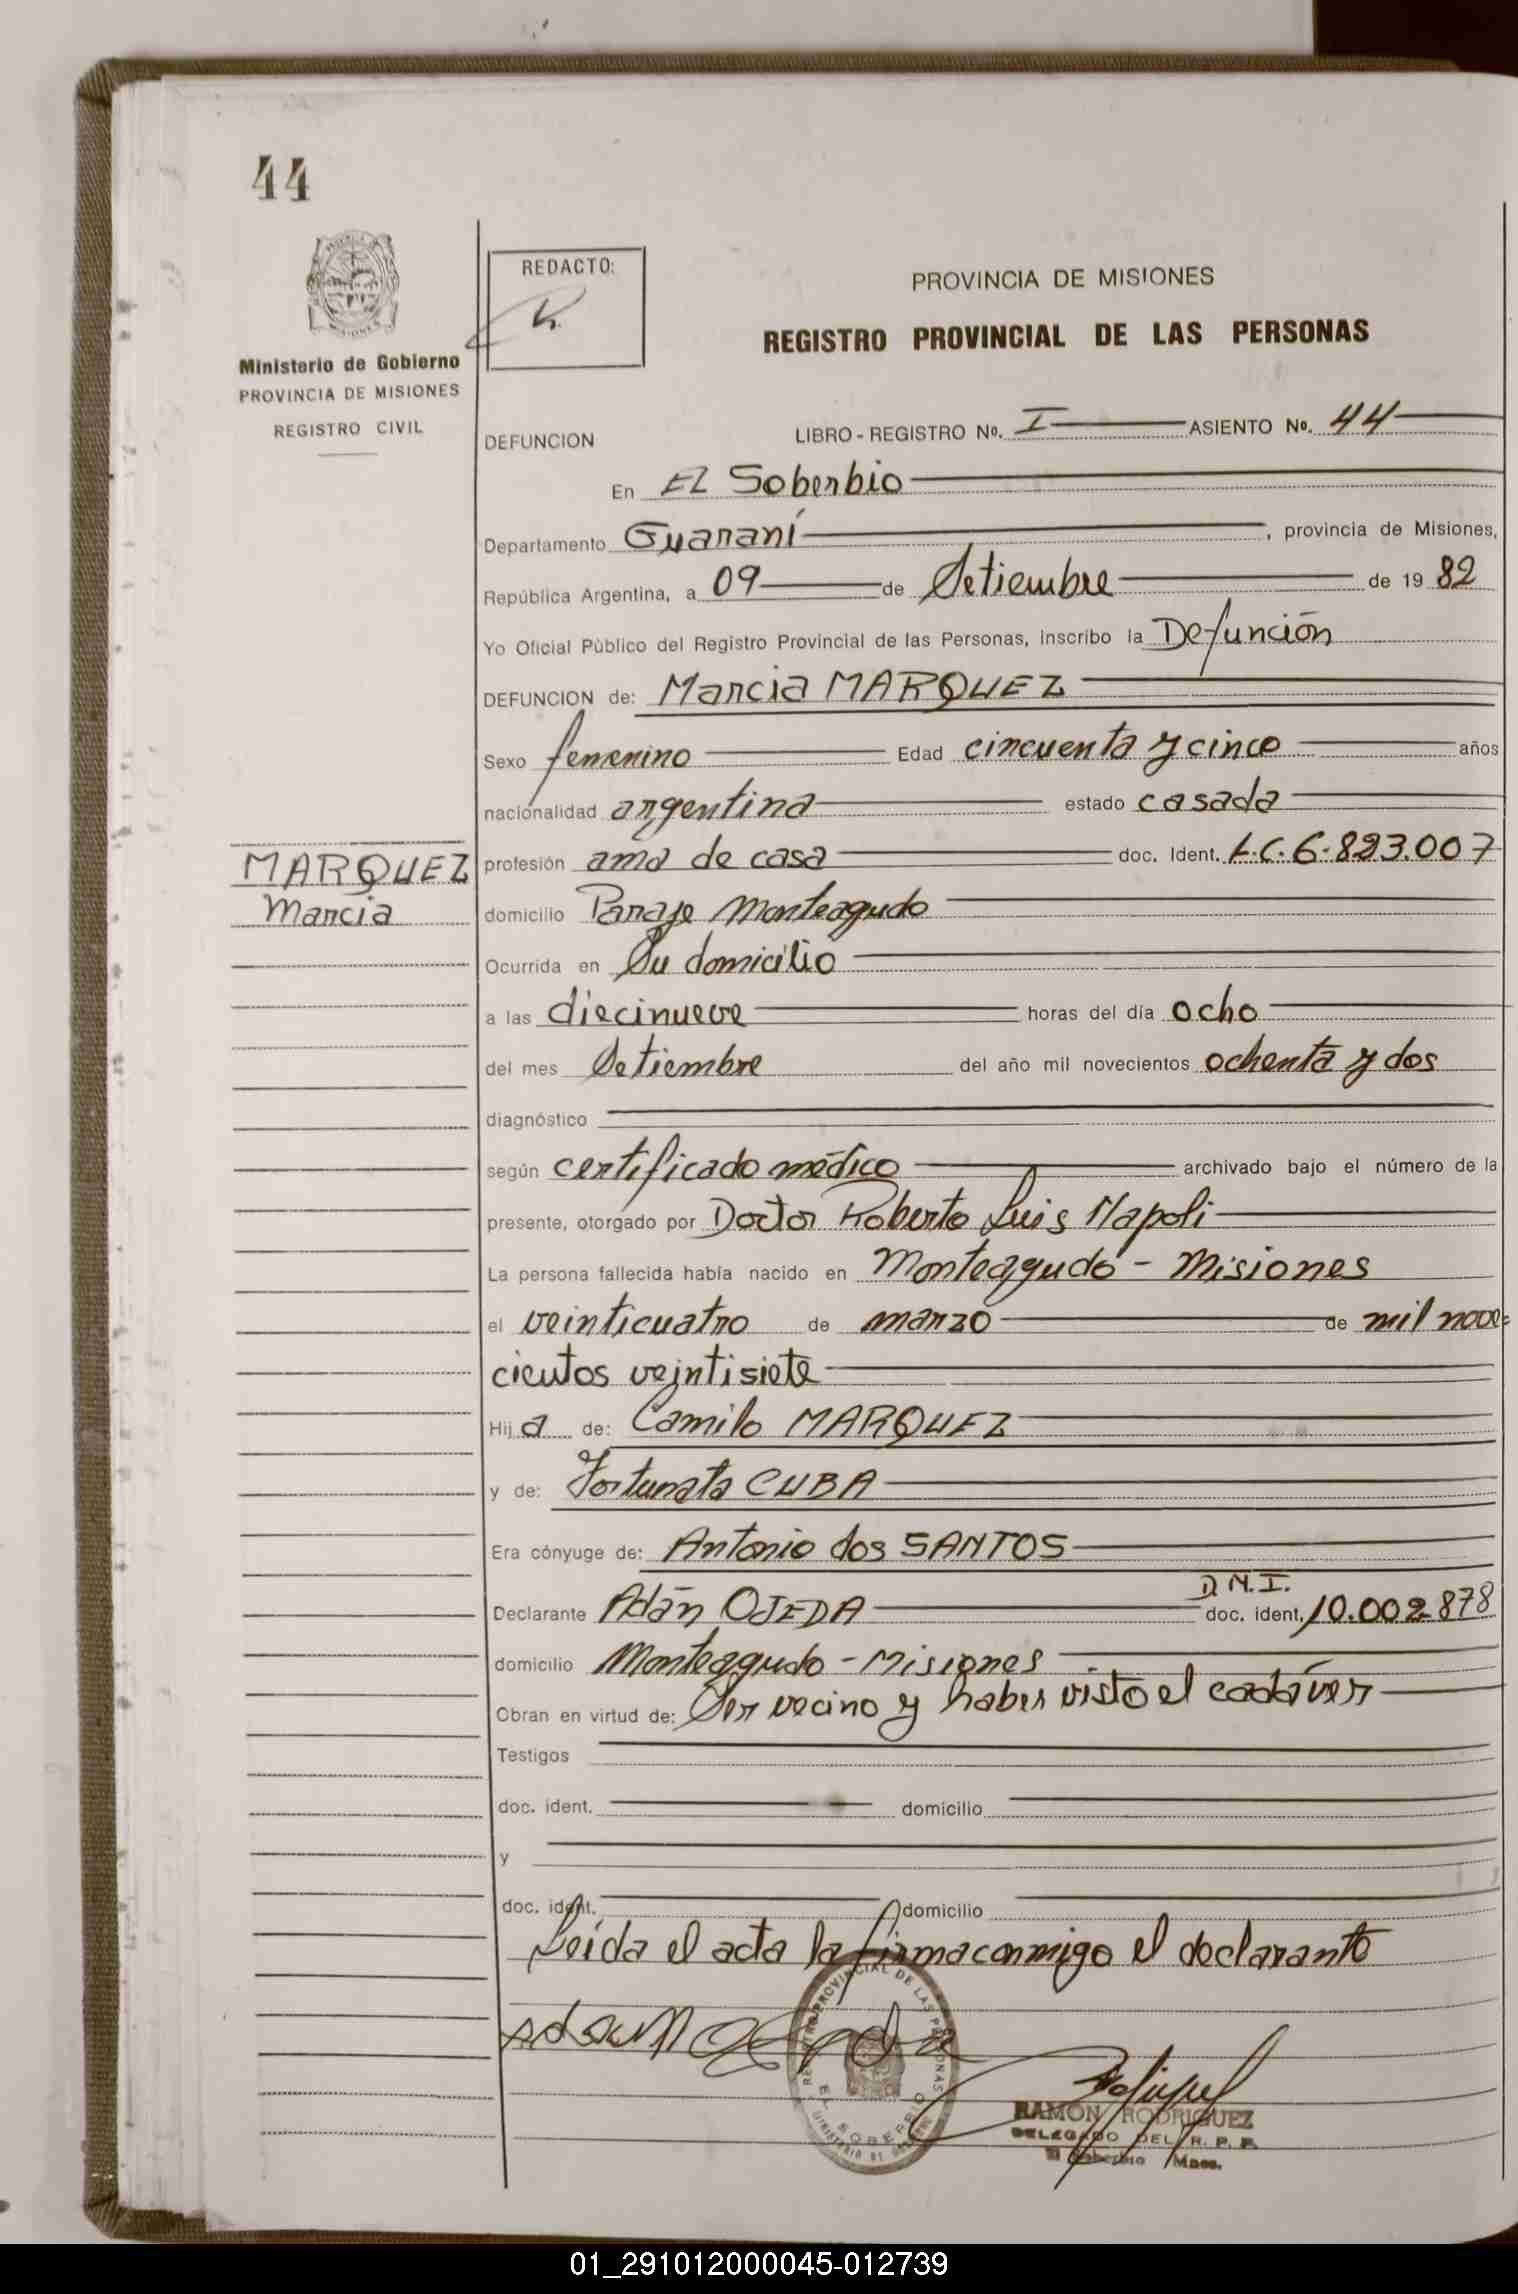 44
Ministerio de Gobierno
PROVINCIA DE MISIONES
REGISTRO CIVIL
REDACTO:
PROVINCIA DE MISIONES
REGISTRO PROVINCIAL DE LAS PERSONAS
DEFUNCION LIBRO - REGISTRO Nº. I ASIENTO Nº. 44
En El Soberbio
Departamento Guaraní, provincia de Misiones,
República Argentina, a 09 de Setiembre de 19 82
Yo Oficial Público del Registro Provincial de las Personas, inscribo la Defunción
DEFUNCION de: Marcia MARQUEZ
Sexo femenino Edad cincuenta y cinco años
nacionalidad argentina estado casada
profesión ama de casa doc. Ident. L.C. 6.823.007
MARQUEZ
Marcia
domicilio Paraje Monteagudo
Ocurrida en Su domicilio
a las diecinueve horas del día ocho
del mes Setiembre del año mil novecientos ochenta y dos
diagnóstico
según certificado médico archivado bajo el número de la
presente, otorgado por Doctor Roberto Luis Napoli
La persona fallecida había nacido en Monteagudo - Misiones
el veinticuatro de marzo de mil nove=
cientos veintisiete
Hij a de: Camilo MARQUEZ
y de: Fortunata CUBA
Era cónyuge de: Antonio dos SANTOS
D.N.I.
Declarante Adán OJEDA doc. ident. 10.002.878
domicilio Monteagudo - Misiones
Obran en virtud de: Ser vecino y haber visto el cadáver
Testigos
doc. ident. domicilio
y
doc. ident. domicilio
Leída el acta la firma conmigo el declarante
REGISTRO PROVINCIAL DE LAS PERSONAS
EL SOBERBIO
MINISTERIO DE GOBIERNO
RAMON RODRIGUEZ
DELEGADO DEL R. P. P.
El Soberbio Mnes.
01_291012000045-012739